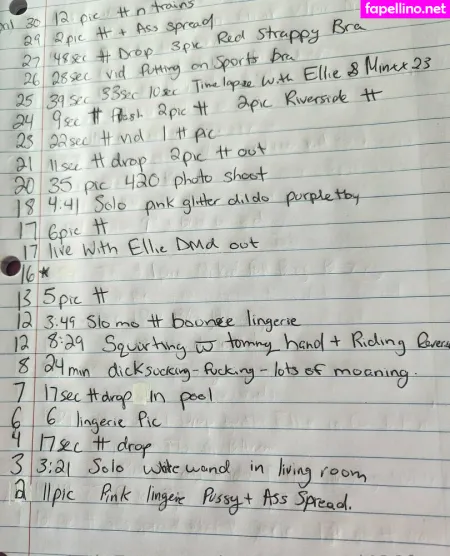 fapellino.net
30 12 pic # n trains
29 2pic # + Ass spread
27 48sec # Drop 3pic Red Strappy Bra
26 28sec vid Putting on Sports bra
25 39 sec 33sec 10sec Timelapse With Ellie & Minxx 23
24 9sec # flash 2pic # 2pic Riverside #
23 22sec # vid 1 # pic
21 11sec # drop 2pic # out
20 35 pic 420 photo shoot
18 4:41 Solo pink glitter dildo purpletoy
17 6pic #
17 live With Ellie DMd out
16 *
13 5pic #
12 3:49 Slo mo # bounce lingerie
12 8:29 Squirting w tommy hand + Riding
8 24min dicksucking - fucking - lots of moaning.
7 17sec # drop In pool
6 6 lingerie Pic
4 17sec # drop
3 3:21 Solo wand in living room
2 11pic Pink lingerie Pussy + Ass Spread.